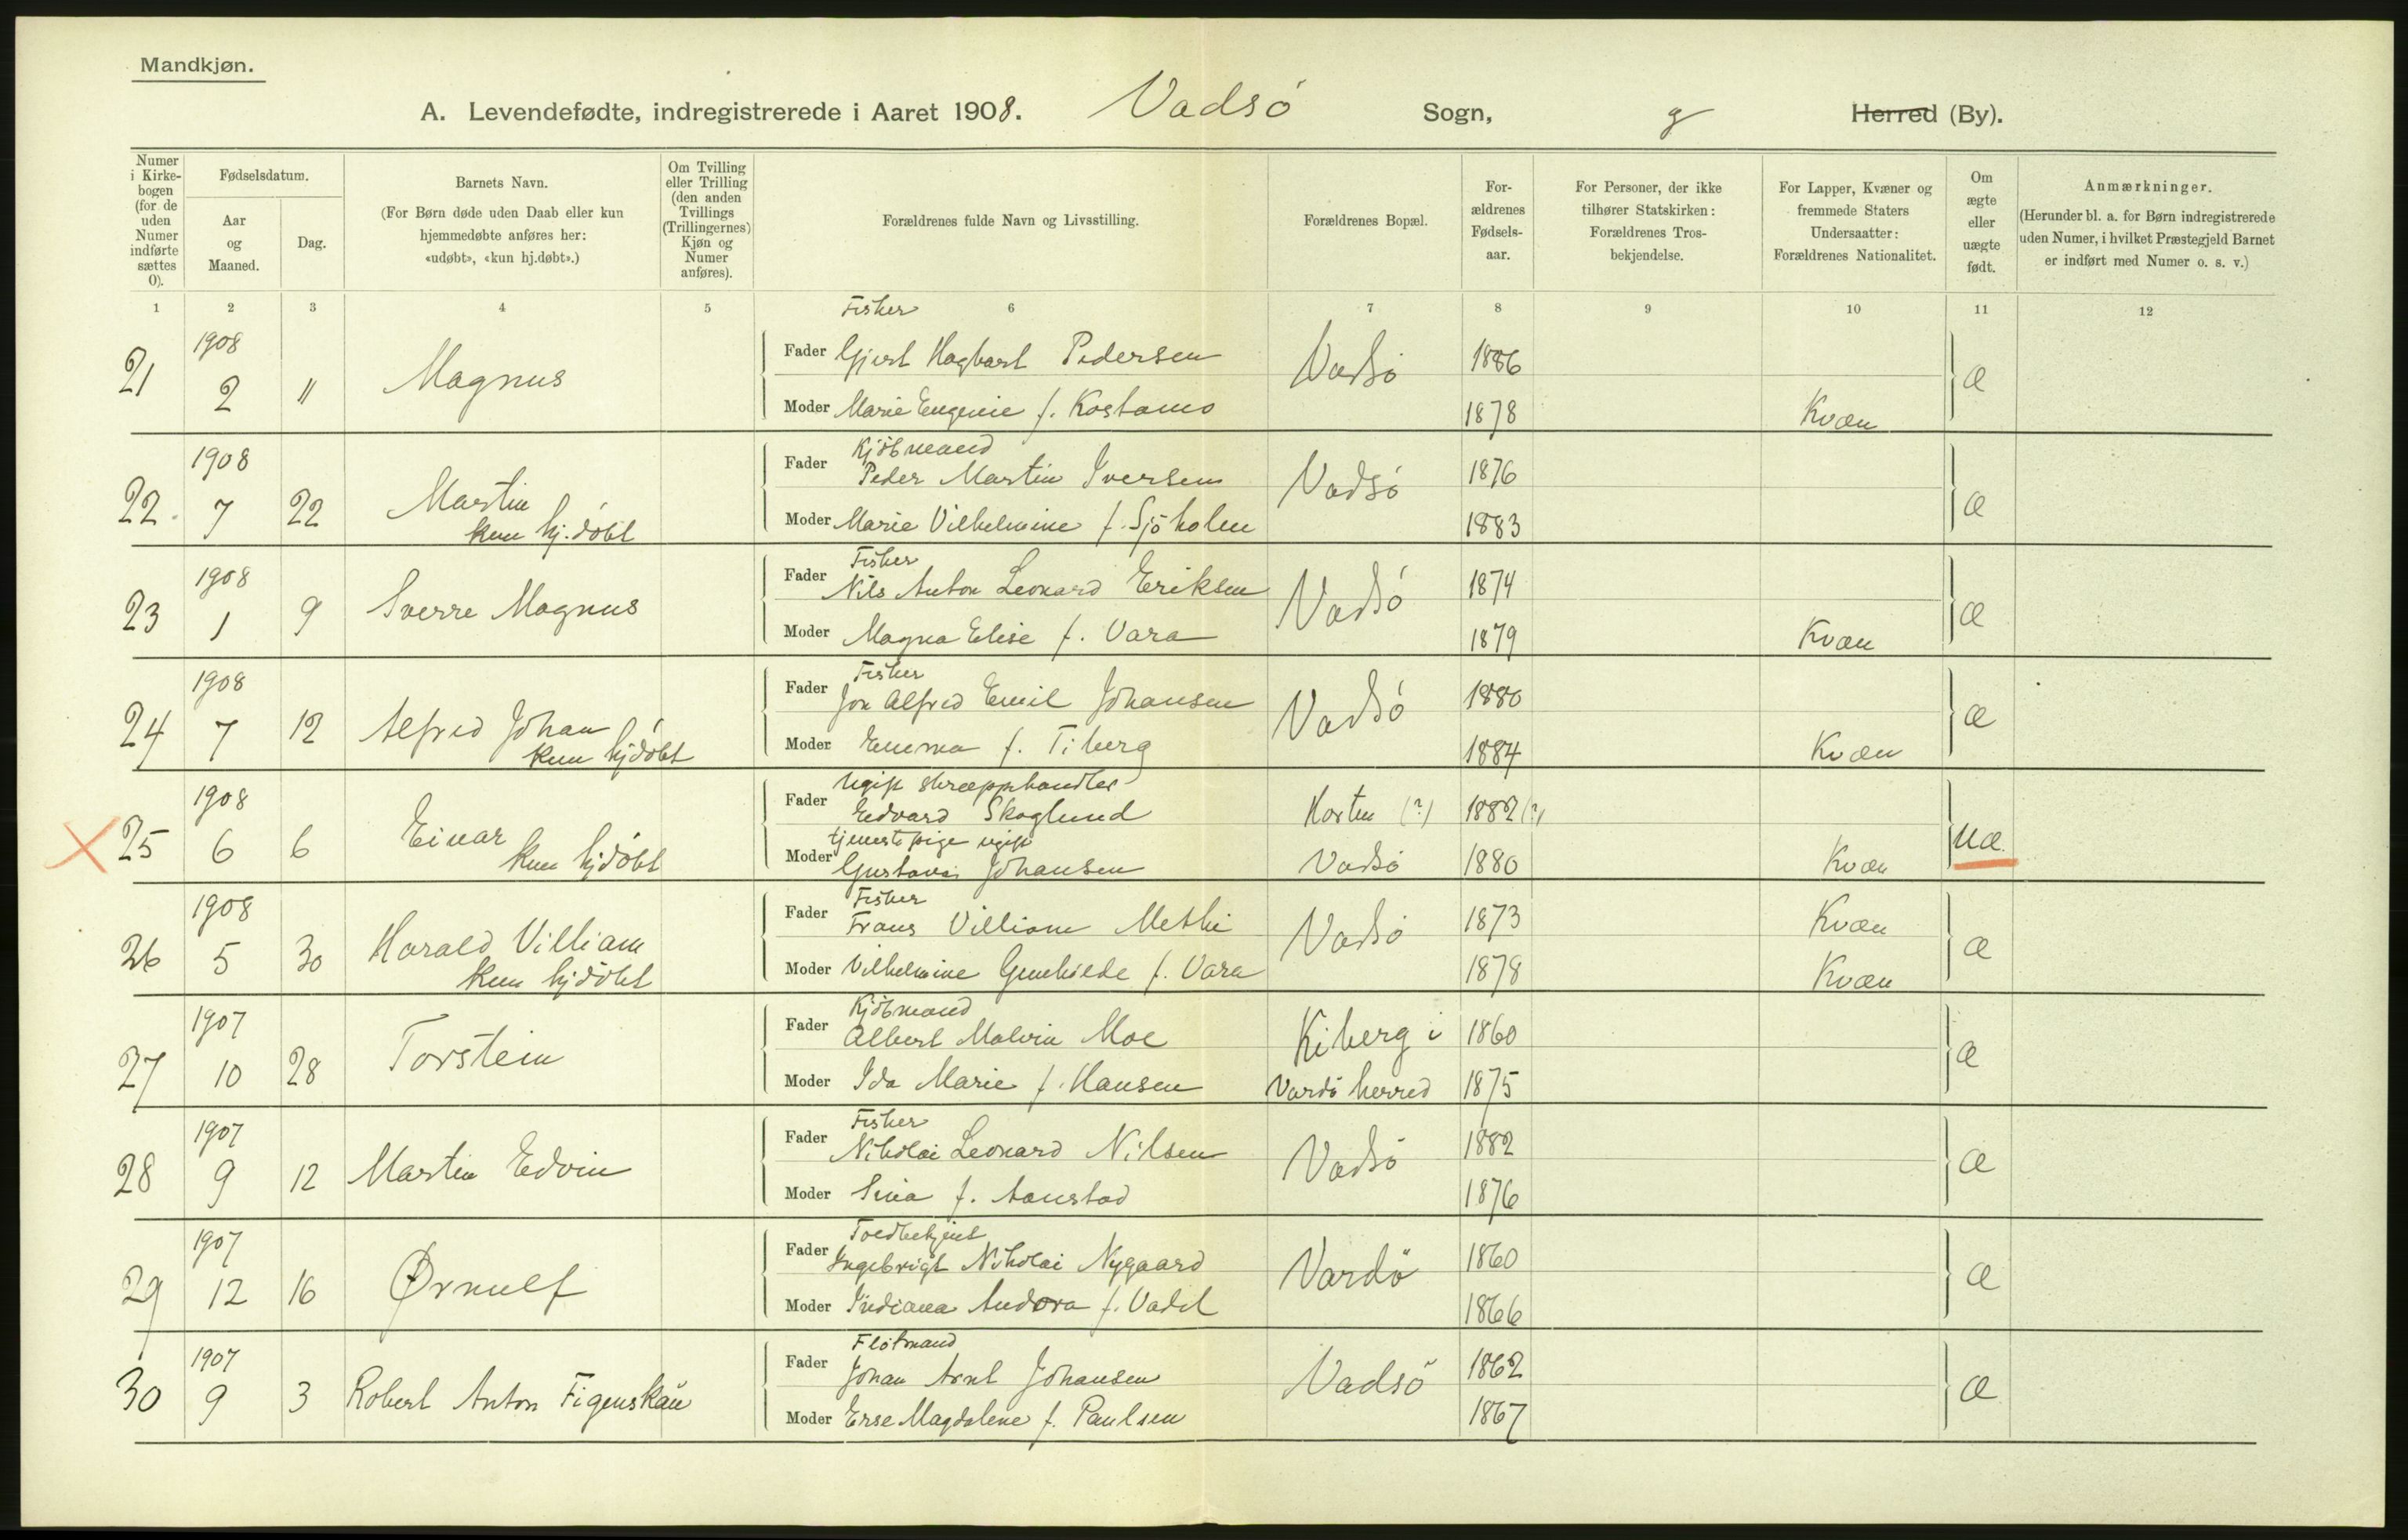 Mandkjøn.
A. Levendefødte, indregistrerede i Aaret 1908. Vadsö Sogn, Herred (By).
Numer i Kirke-bogen (for de uden Numer indførte sættes 0).
Fødselsdatum.
Aar og Maaned.
Dag.
Barnets Navn.
(For Børn døde uden Daab eller kun hjemmedøbte anføres her: «udøbt», «kun hj.døbt».)
Om Tvilling eller Trilling (den anden Tvillings (Trillingernes) Kjøn og Numer anføres).
Forældrenes fulde Navn og Livsstilling.
Forældrenes Bopæl.
For-ældrenes Fødsels-aar.
For Personer, der ikke tilhører Statskirken: Forældrenes Tros-bekjendelse.
For Lapper, Kvæner og fremmede Staters Undersaatter: Forældrenes Nationalitet.
Om ægte eller uægte født.
Anmærkninger.
(Herunder bl. a. for Børn indregistrerede uden Numer, i hvilket Præstegjeld Barnet er indført med Numer o. s. v.)
1 2 3 4 5 6 7 8 9 10 11 12
Fisker
21 1908 2 11 Magnus Fader Gjert Hagbart Pedersen Vadsö 1886 æ
Moder Marie Eugenie f. Kostamo 1878 Kvæn
Kjöbmand
22 1908 7 22 Martin kun hj.döbt Fader Peder Martin Iversen Vadsö 1876 æ
Moder Marie Vilhelmine f. Sjöholm 1883
Fisker
23 1908 1 9 Sverre Magnus Fader Nils Anton Leonard Eriksen Vadsö 1874 æ
Moder Magna Elise f. Vara 1879 Kvæn
Fisker
24 1908 7 12 Alfred Johan kun hjdöbt Fader Jon Alfred Emil Johansen Vadsö 1880 æ
Moder Emma f. Tiberg 1884 Kvæn
Ugift skræpphandler
25 1908 6 6 Einar kun hjdöbt Fader Edvard Skoglund (?) 1882 (?) uæ.
tjenestepige ugift
Moder Gustava Johansen Vadsö 1880 Kvæn
Fisker
26 1908 5 30 Harald Villiam kun hjdöbt Fader Frans Villiam Methi Vadsö 1873 Kvæn æ
Moder Vilhelmine Gunhilde f. Vara 1878 Kvæn
Kjöbmand
27 1907 10 28 Torstein Fader Albert Malvin Moe Kiberg i 1860 æ
Moder Ida Marie f. Hansen Vardö herred 1875
Fisker
28 1907 9 12 Martin Edvin Fader Nikolai Leonard Nilsen Vadsö 1882 æ
Moder Sina f. Aanstad 1876
Toldbetjent
29 1907 12 16 Ørnulf Fader Ingebrigt Nikolai Nygaard Vardö 1860 æ
Moder Indiana Andora f. Vadel 1866
Flötmand
30 1907 9 3 Robert Anton Figenskau Fader Johan Arnt Johansen Vadsö 1862 æ
Moder Erse Magdalene f. Paulsen 1867